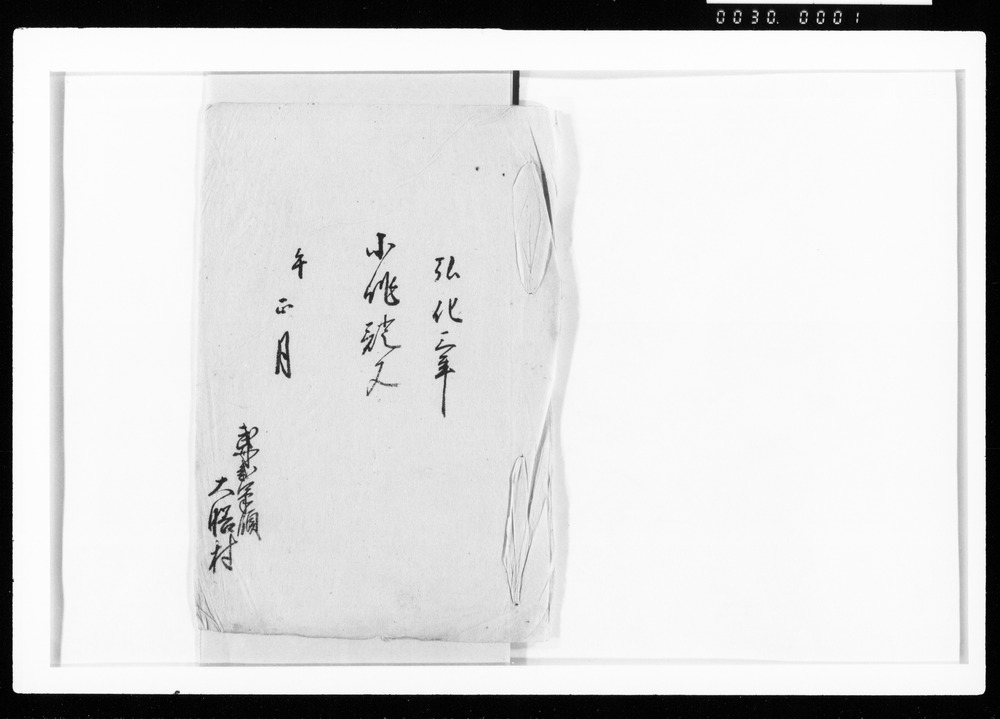 0030.0001
弘化三年
小作證文
午
正月
大
村